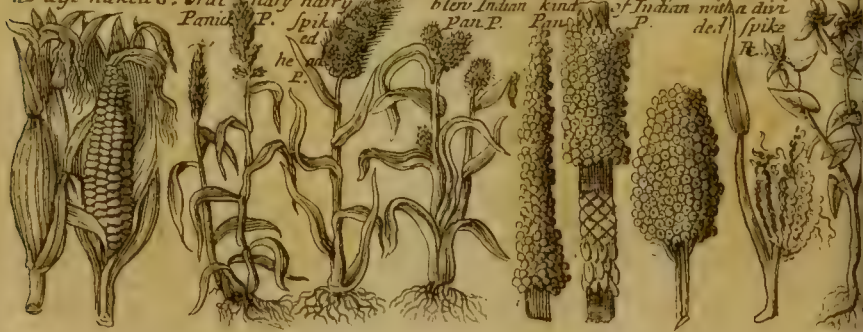 naked S. nary hairy blew Indian kind of Indian with a divi
Panick P. ſpik Pan. P. Pan P. ded ſpike
ed
he ad
P.